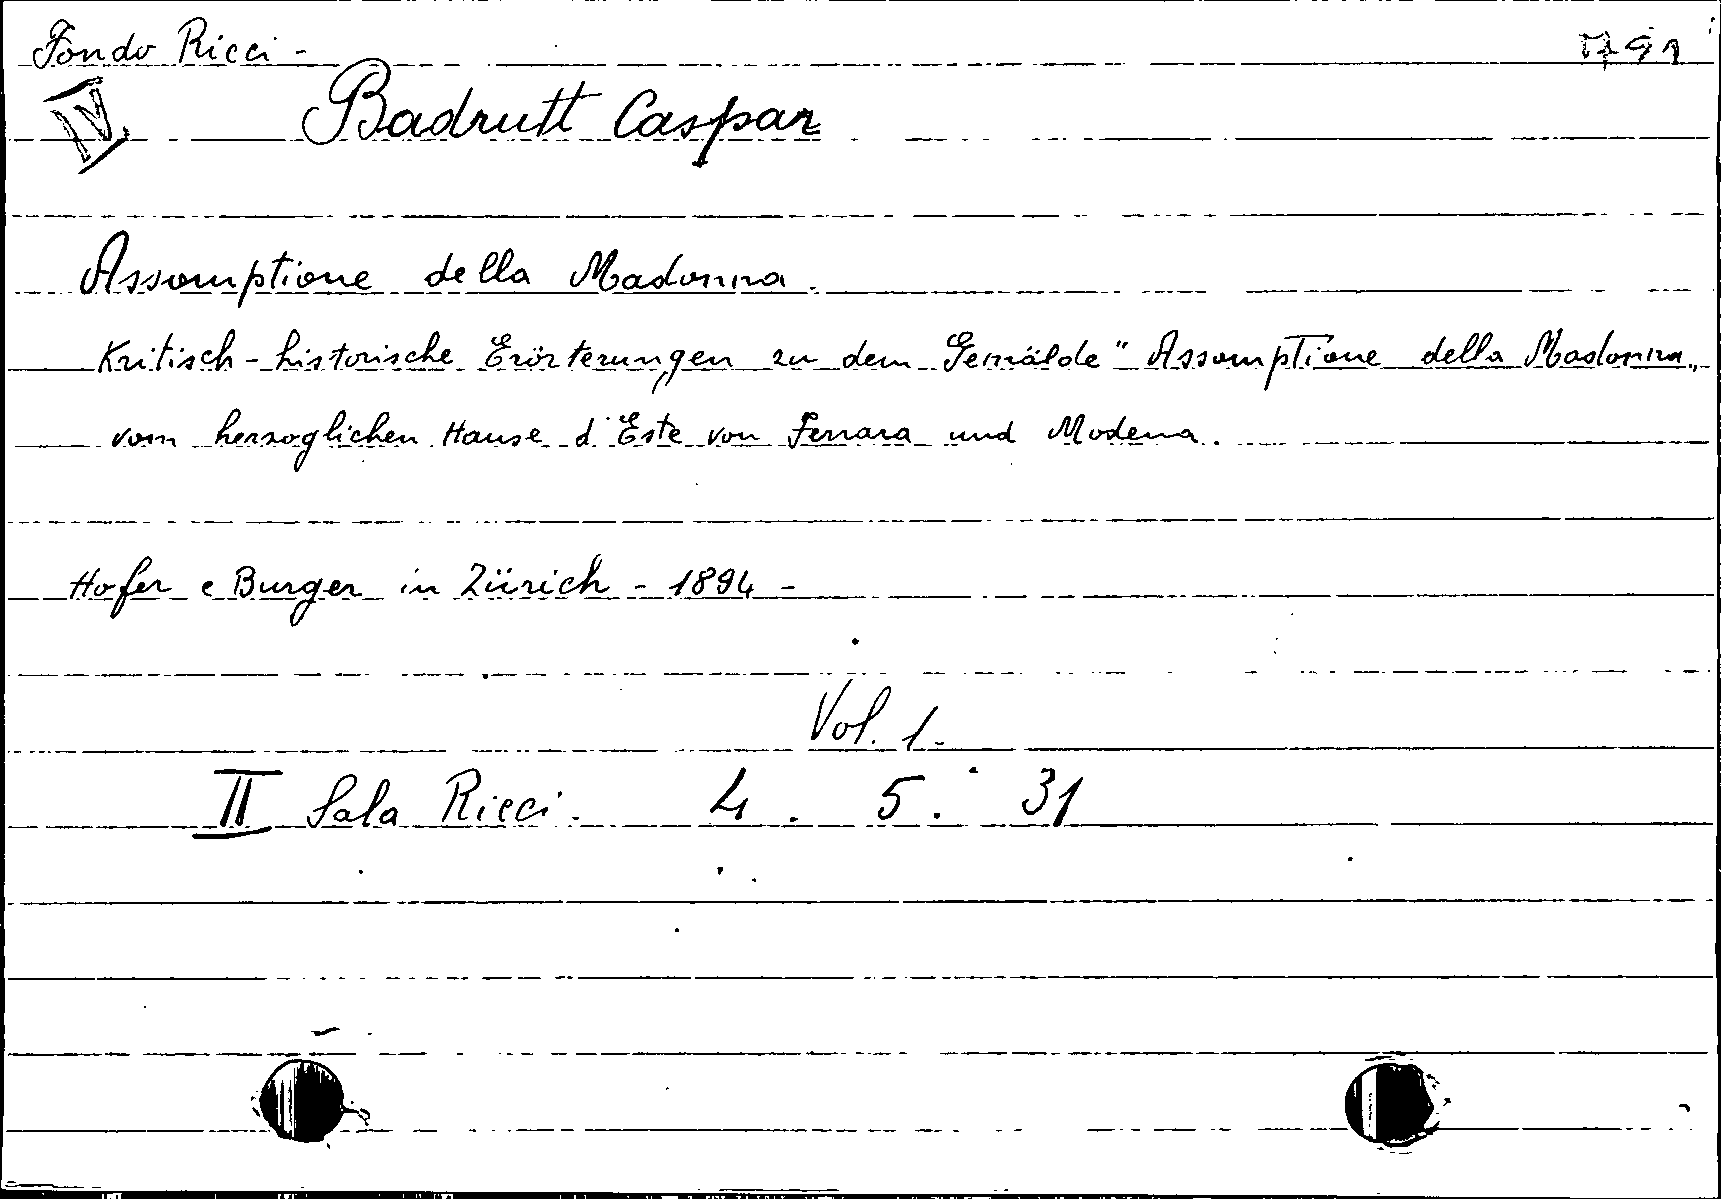 Fondo Ricci -
IV Badrutt Caspar
Assomptione della Madonna.
Kritisch-historische Erörterungen zu dem Gemälde "Assomptione della Madonna„
vom herzoglichen Hause d'Este von Ferrara und Modena.
Hofer e Burger in Zürich - 1894 -
Vol. 1.
II Sala Ricci. 4. 5. 31